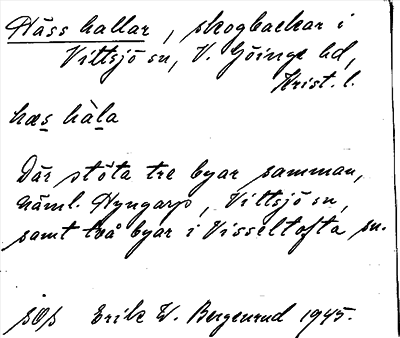 Häss hallar, skogbackar i
Vittsjö sn, V. Göinge hd,
Krist. l.
hæs hàla
Där stöta tre byar samman,
näml. Hyngarp, Vittsjö sn,
samt två byar i Visseltofta sn.
Erik W. Bergenrud 1945.